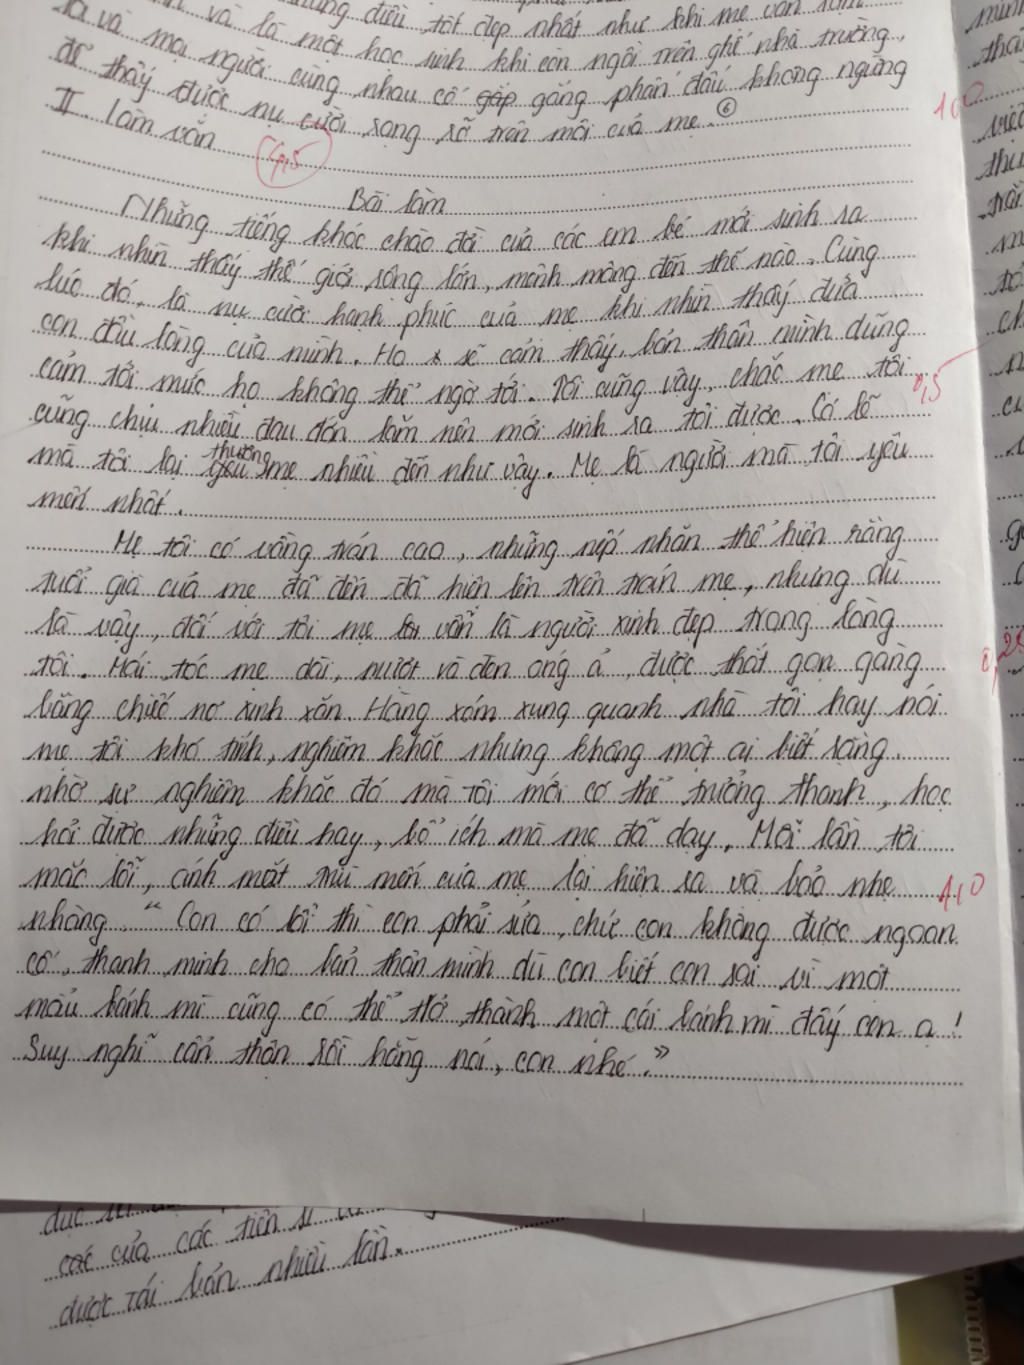 và là một học sinh khi còn ngồi trên ghế nhà trường,
và mọi người cùng nhau cố gắng phấn đấu không ngừng
để thấy được nụ cười rạng rỡ trên môi của mẹ. 6
II. Làm văn
4,5
1,0
Bài làm
Những tiếng khóc chào đời của các em bé mới sinh ra
khi nhìn thấy thế giới rộng lớn, mênh mông đến thế nào. Cùng
lúc đó, là nụ cười hạnh phúc của mẹ khi nhìn thấy đứa
con đầu lòng của mình. Họ sẽ cảm thấy, bản thân mình dũng
cảm tới mức họ không thể ngờ tới. Tôi cũng vậy, chắc mẹ tôi
0,5
cũng chịu nhiều đau đớn lắm nên mới sinh ra tôi được. Có lẽ
mà tôi lại yêu thương mẹ nhiều đến như vậy. Mẹ là người mà tôi yêu
mến nhất.
Mẹ tôi có vầng trán cao, những nếp nhăn thể hiện rằng
tuổi già của mẹ đã đến đã hiện lên trên trán mẹ, nhưng dù
là vậy, đối với tôi mẹ vẫn là người xinh đẹp trong lòng
tôi. Mái tóc mẹ dài, mượt và đen óng ả, được thắt gọn gàng
bằng chiếc nơ xinh xắn. Hàng xóm xung quanh nhà tôi hay nói
mẹ tôi khó tính, nghiêm khắc nhưng không một ai biết rằng.
nhờ sự nghiêm khắc đó mà tôi mới có thể trưởng thành, học
hỏi được những điều hay, bổ ích mà mẹ đã dạy. Mỗi lần tôi
mắc lỗi, ánh mắt trìu mến của mẹ lại hiện ra và bảo nhẹ
1,0
nhàng "Con có lỗi thì con phải sửa, chứ con không được ngoan
cố, thanh minh cho bản thân mình dù con biết con sai vì một
mẩu bánh mì cũng có thể trở thành một cái bánh mì đấy con ạ!
Suy nghĩ cẩn thận rồi hẵng nói, con nhé."
của các tiến sĩ
được tái bản nhiều lần.